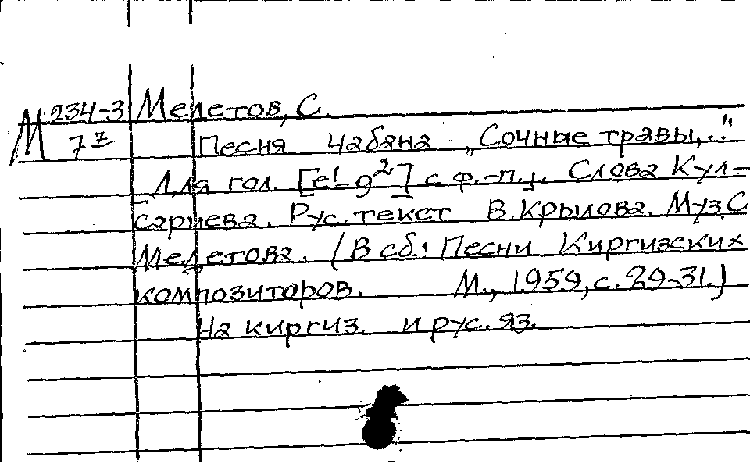 М 234-3 Медетов, С.
7 Песня чабана „Сочные травы,..“
Для гол. [e¹-g²] с ф.-п. Слова Кул-
сариева. Рус. текст В. Крылова. Муз. С.
Медетова. (В сб.: Песни Киргизских
композиторов. М., 1959, с. 29-31.)
На киргиз. и рус. яз.